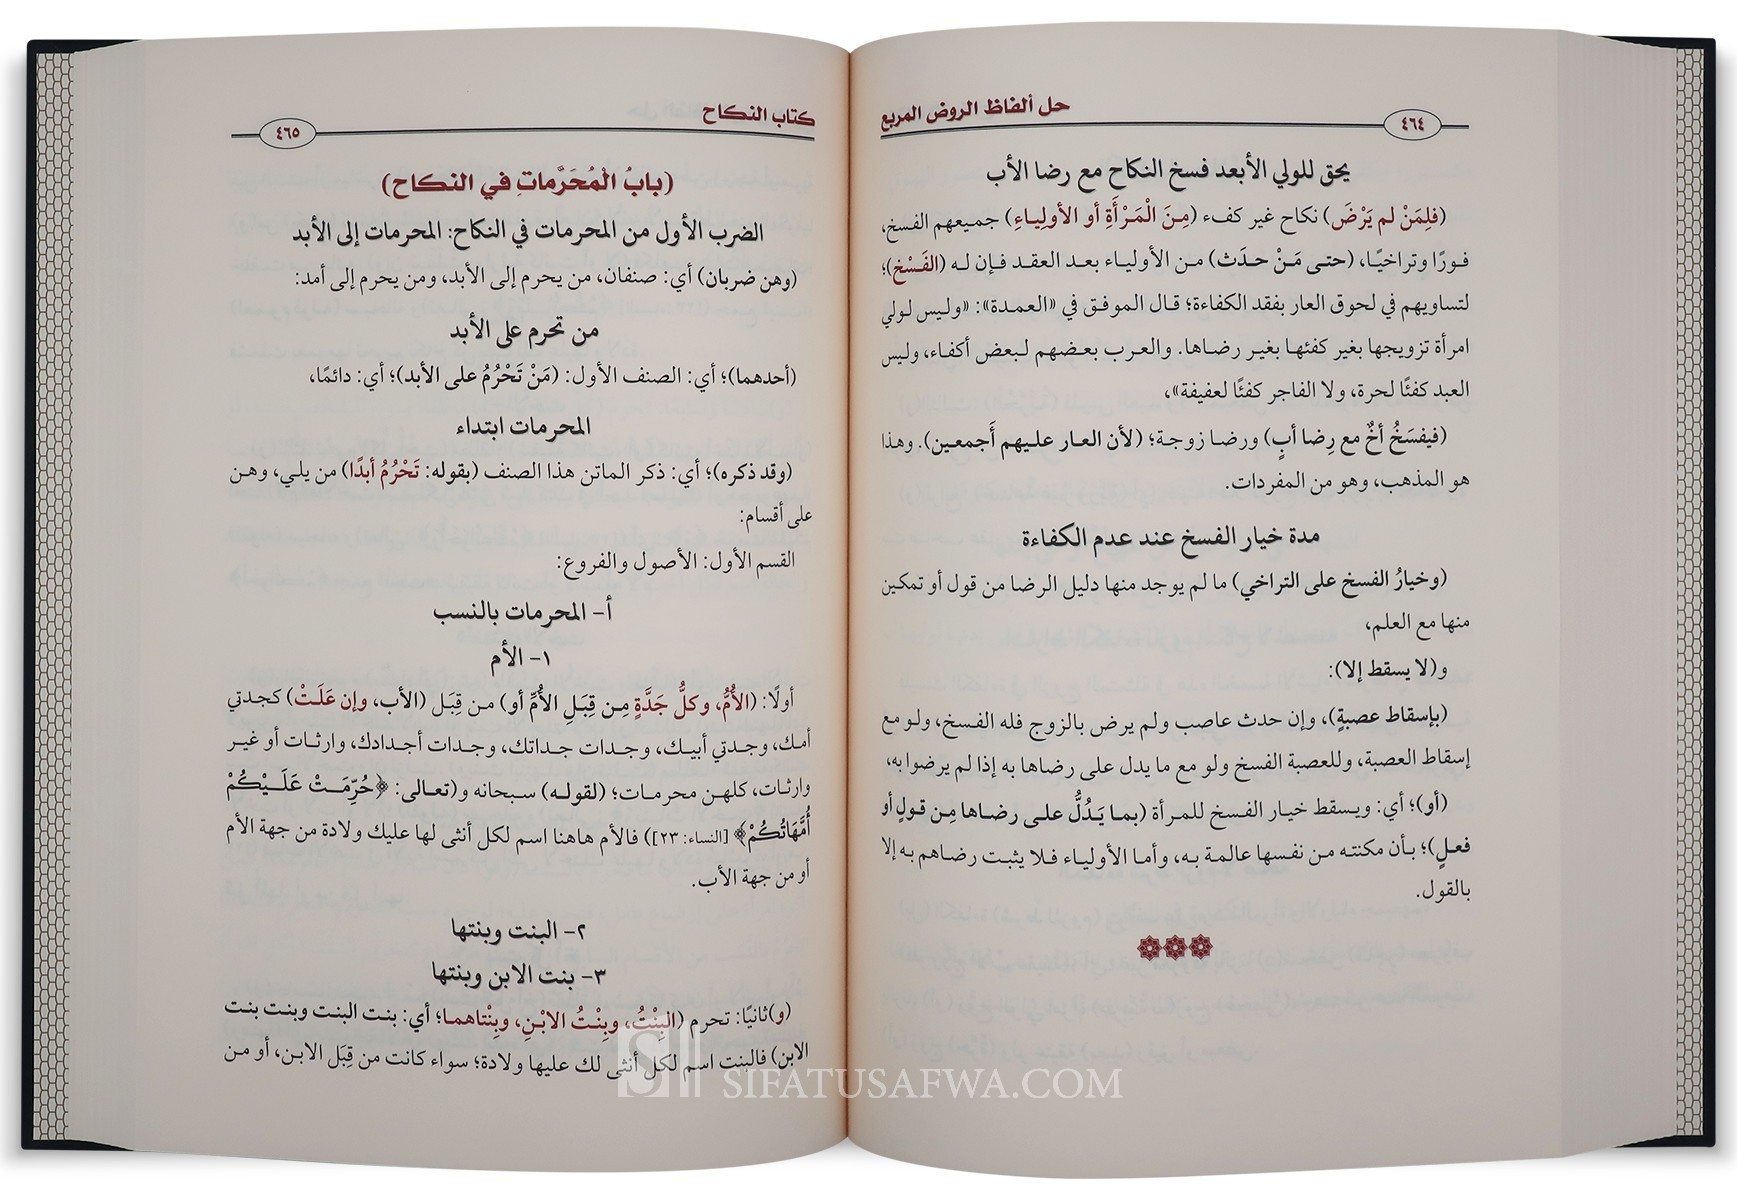 حل ألفاظ الروض المربع
٤٦٤
يحق للولي الأبعد فسخ النكاح مع رضا الأب
(فلِمَنْ لم يَرْضَ) نكاح غير كفاء (مِنَ الْمَرْأَةِ أو الأولياءِ) جميعهم الفسخ،
فورًا وتراخيًا، (حتى مَنْ حدَث) من الأولياء بعد العقد فإن له (الفَسْخ)؛
لتساويهم في لحوق العار بفقد الكفاءة؛ قال الموفق في «العمدة»: «وليس لولي
امرأة تزويجها بغير كفئها بغير رضاها. والعرب بعضهم لبعض أكفاء، وليس
العبد كفئًا لحرة، ولا الفاجر كفئًا لعفيفة»،
(فيفسَخُ أخٌ مع رِضا أبٍ) ورضا زوجة؛ (لأن العار عليهم أَجمعين). وهذا
هو المذهب، وهو من المفردات.
مدة خيار الفسخ عند عدم الكفاءة
(وخيارُ الفسخ على التراخي) ما لم يوجد منها دليل الرضا من قول أو تمكين
منها مع العلم،
و(لا يسقط إلا):
(بإسقاط عصبةٍ)، وإن حدث عاصب ولم يرض بالزوج فله الفسخ، ولو مع
إسقاط العصبة، وللعصبة الفسخ ولو مع ما يدل على رضاها به إذا لم يرضوا به،
(أو)؛ أي: ويسقط خيار الفسخ للمرأة (بما يَدُلُّ على رضاها مِن قولٍ أو
فعلٍ)؛ بأن مكنته من نفسها عالمة به، وأما الأولياء فلا يثبت رضاهم به إلا
بالقول.
كتاب النكاح
٤٦٥
(بابُ الْمُحَرَّماتِ في النكاح)
الضرب الأول من المحرمات في النكاح: المحرمات إلى الأبد
(وهن ضربان) أي: صنفان، من يحرم إلى الأبد، ومن يحرم إلى أمد:
من تحرم على الأبد
(أحدهما)؛ أي: الصنف الأول: (مَنْ تَحْرُمُ على الأبد)؛ أي: دائمًا،
المحرمات ابتداء
(وقد ذكره)؛ أي: ذكر الماتن هذا الصنف (بقوله: تَحْرُمُ أبدًا) من يلي، وهن
على أقسام:
القسم الأول: الأصول والفروع:
أ- المحرمات بالنسب
١- الأم
أولًا: (الأُمُّ، وكلُّ جَدَّةٍ مِن قِبَلِ الأمِّ أو) من قِبَل (الأب، وإن عَلَتْ) كجدتي
أمك، وجدتي أبيك، وجدات جداتك، وجدات أجدادك، وارثات أو غير
وارثات، كلهن محرمات؛ (لقوله) سبحانه و(تعالى: ﴿حُرِّمَتْ عَلَيْكُمْ
أُمَّهَاتُكُمْ﴾ [النساء: ٢٣]) فالأم هاهنا اسم لكل أنثى لها عليك ولادة من جهة الأم
أو من جهة الأب.
٢- البنت وبنتها
٣- بنت الابن وبنتها
(و)ثانيًا: تحرم (البِنْتُ، وبِنْتُ الابْنِ، وبِنْتاهما؛ أي: بنت البنت وبنت بنت
الابن) فالبنت اسم لكل أنثى لك عليها ولادة؛ سواء كانت من قِبَل الابن، أو من
SIFATUSAFWA.COM